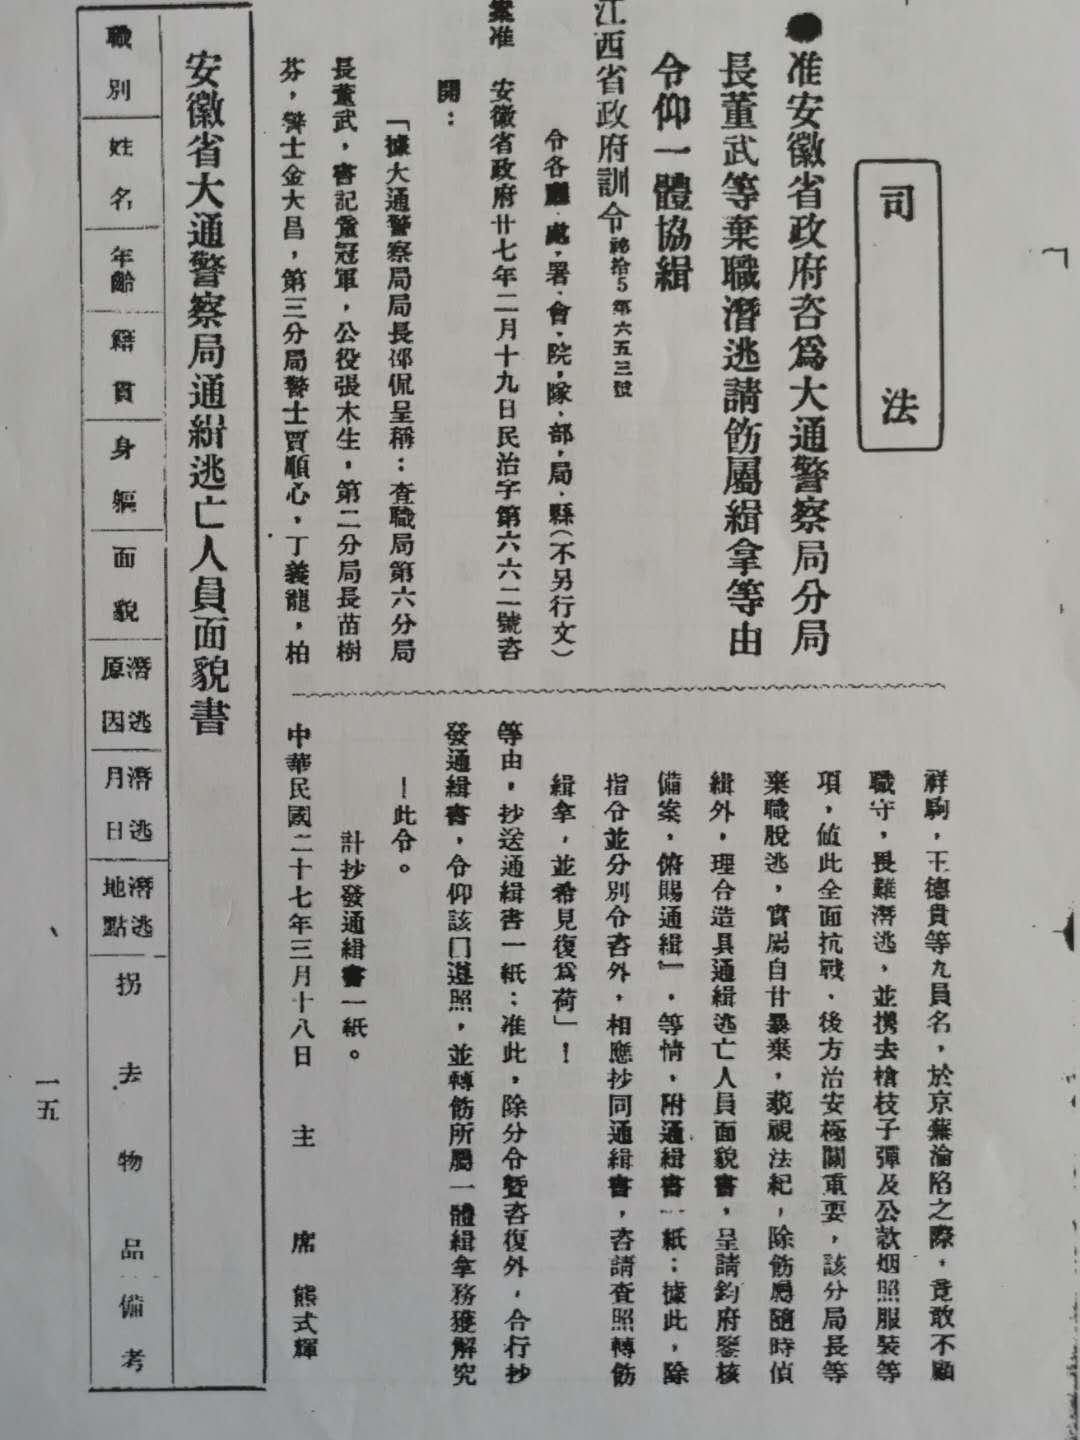 司法
●准安徽省政府咨爲大通警察局分局
長董武等棄職潛逃請飭屬緝拿等由
令仰一體協緝
江西省政府訓令祕拾5第六五三號
令各廳、處、署、會、院、隊、部、局、縣(不另行文)
案准 安徽省政府廿七年二月十九日民治字第六六二號咨
開：
「據大通警察局局長邵侃呈稱：查職局第六分局
長董武，書記詹冠軍，公役張木生，第二分局長苗樹
芬，警士金大昌，第三分局警士賈順心，丁義龍，柏
祥駒，王德貴等九員名，於京蕪淪陷之際，竟敢不顧
職守，畏難潛逃，並携去槍枝子彈及公款烟照服裝等
項，値此全面抗戰、後方治安極關重要，該分局長等
棄職脫逃，實屬自甘暴棄，藐視法紀，除飭屬隨時偵
緝外，理合造具通緝逃亡人員面貌書，呈請鈞府鑒核
備案，俯賜通緝」，等情，附通緝書一紙；據此，除
指令並分別令咨外，相應抄同通緝書，咨請查照轉飭
緝拿，並希見復爲荷」！
等由，抄送通緝書一紙；准此，除分令曁咨復外，合行抄
發通緝書，令仰該□遵照，並轉飭所屬一體緝拿務獲解究
—此令。
計抄發通緝書一紙。
中華民國二十七年三月十八日 主席 熊式輝
安徽省大通警察局通緝逃亡人員面貌書
職別 姓名 年齡 籍貫 身軀 面貌 潛逃原因 潛逃月日 潛逃地點 拐去物品 備考
一五